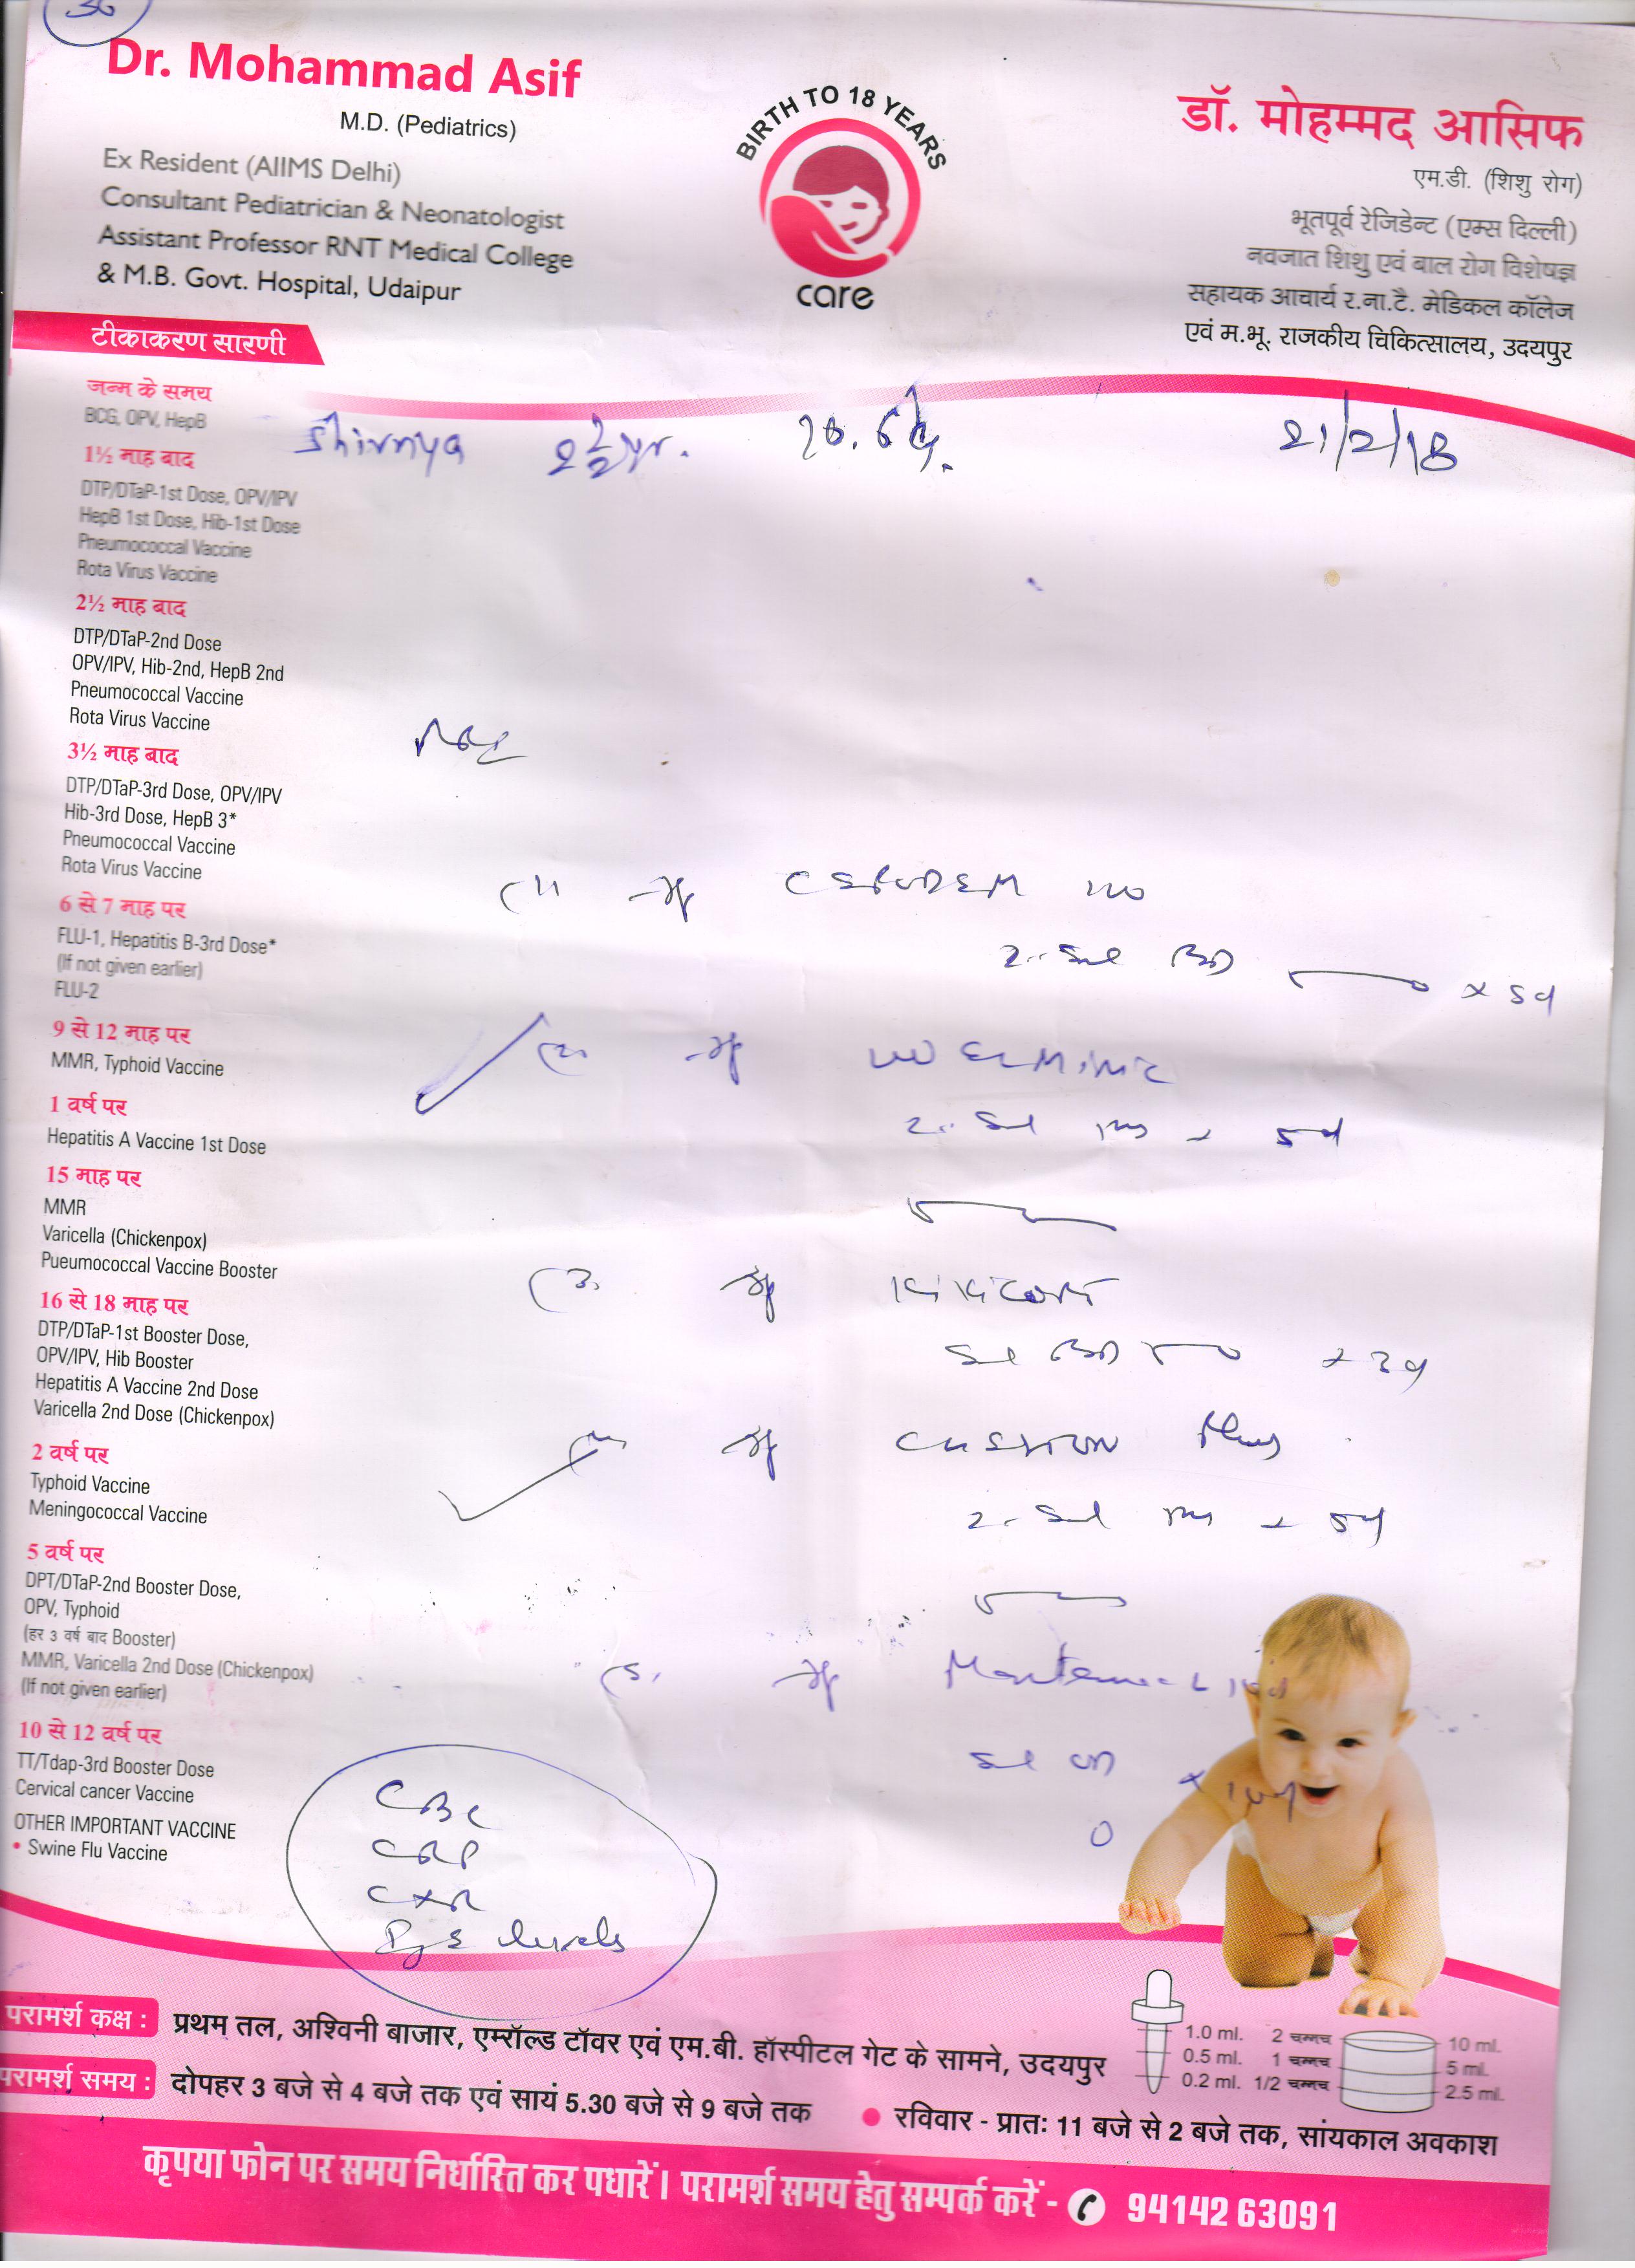 36
Dr. Mohammad Asif
M.D. (Pediatrics)
Ex Resident (AIIMS Delhi)
Consultant Pediatrician & Neonatologist
Assistant Professor RNT Medical College
& M.B. Govt. Hospital, Udaipur
BIRTH TO 18 YEARS
care
डॉ. मोहम्मद आसिफ
एम.डी. (शिशु रोग)
भूतपूर्व रेजिडेन्ट (एम्स दिल्ली)
नवजात शिशु एवं बाल रोग विशेषज्ञ
सहायक आचार्य र.ना.टै. मेडिकल कॉलेज
एवं म.भू. राजकीय चिकित्सालय, उदयपुर
टीकाकरण सारणी
जन्म के समय
BCG, OPV, HepB
1½ माह बाद
DTP/DTaP-1st Dose, OPV/IPV
HepB 1st Dose, Hib-1st Dose
Pneumococcal Vaccine
Rota Virus Vaccine
2½ माह बाद
DTP/DTaP-2nd Dose
OPV/IPV, Hib-2nd, HepB 2nd
Pneumococcal Vaccine
Rota Virus Vaccine
3½ माह बाद
DTP/DTaP-3rd Dose, OPV/IPV
Hib-3rd Dose, HepB 3*
Pneumococcal Vaccine
Rota Virus Vaccine
6 से 7 माह पर
FLU-1, Hepatitis B-3rd Dose*
(If not given earlier)
FLU-2
9 से 12 माह पर
MMR, Typhoid Vaccine
1 वर्ष पर
Hepatitis A Vaccine 1st Dose
15 माह पर
MMR
Varicella (Chickenpox)
Pueumococcal Vaccine Booster
16 से 18 माह पर
DTP/DTaP-1st Booster Dose,
OPV/IPV, Hib Booster
Hepatitis A Vaccine 2nd Dose
Varicella 2nd Dose (Chickenpox)
2 वर्ष पर
Typhoid Vaccine
Meningococcal Vaccine
5 वर्ष पर
DPT/DTaP-2nd Booster Dose,
OPV, Typhoid
(हर 3 वर्ष बाद Booster)
MMR, Varicella 2nd Dose (Chickenpox)
(If not given earlier)
10 से 12 वर्ष पर
TT/Tdap-3rd Booster Dose
Cervical cancer Vaccine
OTHER IMPORTANT VACCINE
• Swine Flu Vaccine
2½ yr.
21/2/18
BD x 5d
5d
BD 3d
Plus
5d
CBC
CRP
CXR
levels
1.0 ml. 2 चम्मच 10 ml.
0.5 ml. 1 चम्मच 5 ml.
0.2 ml. 1/2 चम्मच 2.5 ml.
परामर्श कक्ष : प्रथम तल, अश्विनी बाजार, एमरॉल्ड टॉवर एवं एम.बी. हॉस्पीटल गेट के सामने, उदयपुर
परामर्श समय : दोपहर 3 बजे से 4 बजे तक एवं सायं 5.30 बजे से 9 बजे तक • रविवार - प्रातः 11 बजे से 2 बजे तक, सांयकाल अवकाश
कृपया फोन पर समय निर्धारित कर पधारें। परामर्श समय हेतु सम्पर्क करें - 94142 63091